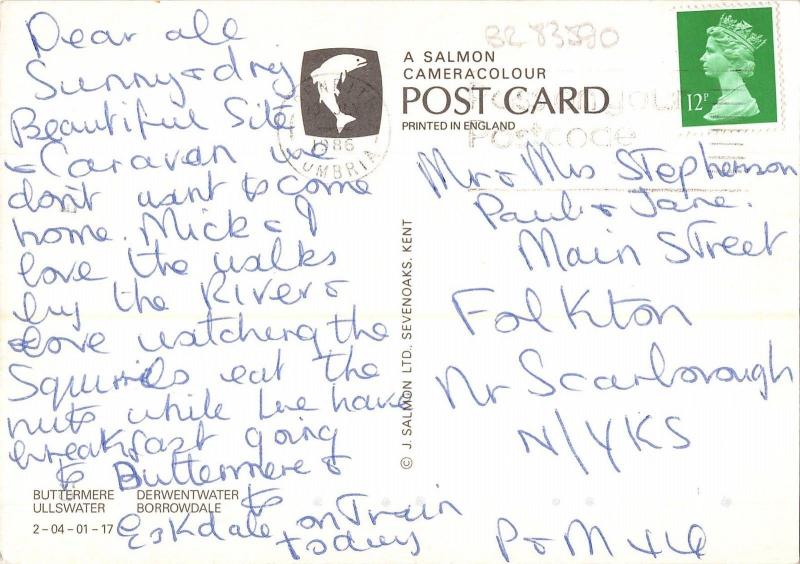 Dear all
Sunny & dry
Beautiful Site
& Caravan we
don't want to come
home. Mick & I
love the walks
by the River &
love watching the
Squirrels eat the
nuts while we have
breakfast going
to Buttermere &
to
Eskdale on Train
today
BUTTERMERE DERWENTWATER
ULLSWATER BORROWDALE
2-04-01-17
A SALMON
CAMERACOLOUR
POST CARD
PRINTED IN ENGLAND
© J. SALMON LTD., SEVENOAKS, KENT
1986
CUMBRIA
BZ 83580
your
Postcode
12P
Mr & Mrs Stephenson
Paul & Jane.
Main Street
Folkton
Nr Scarborough
N/YKS
P & M